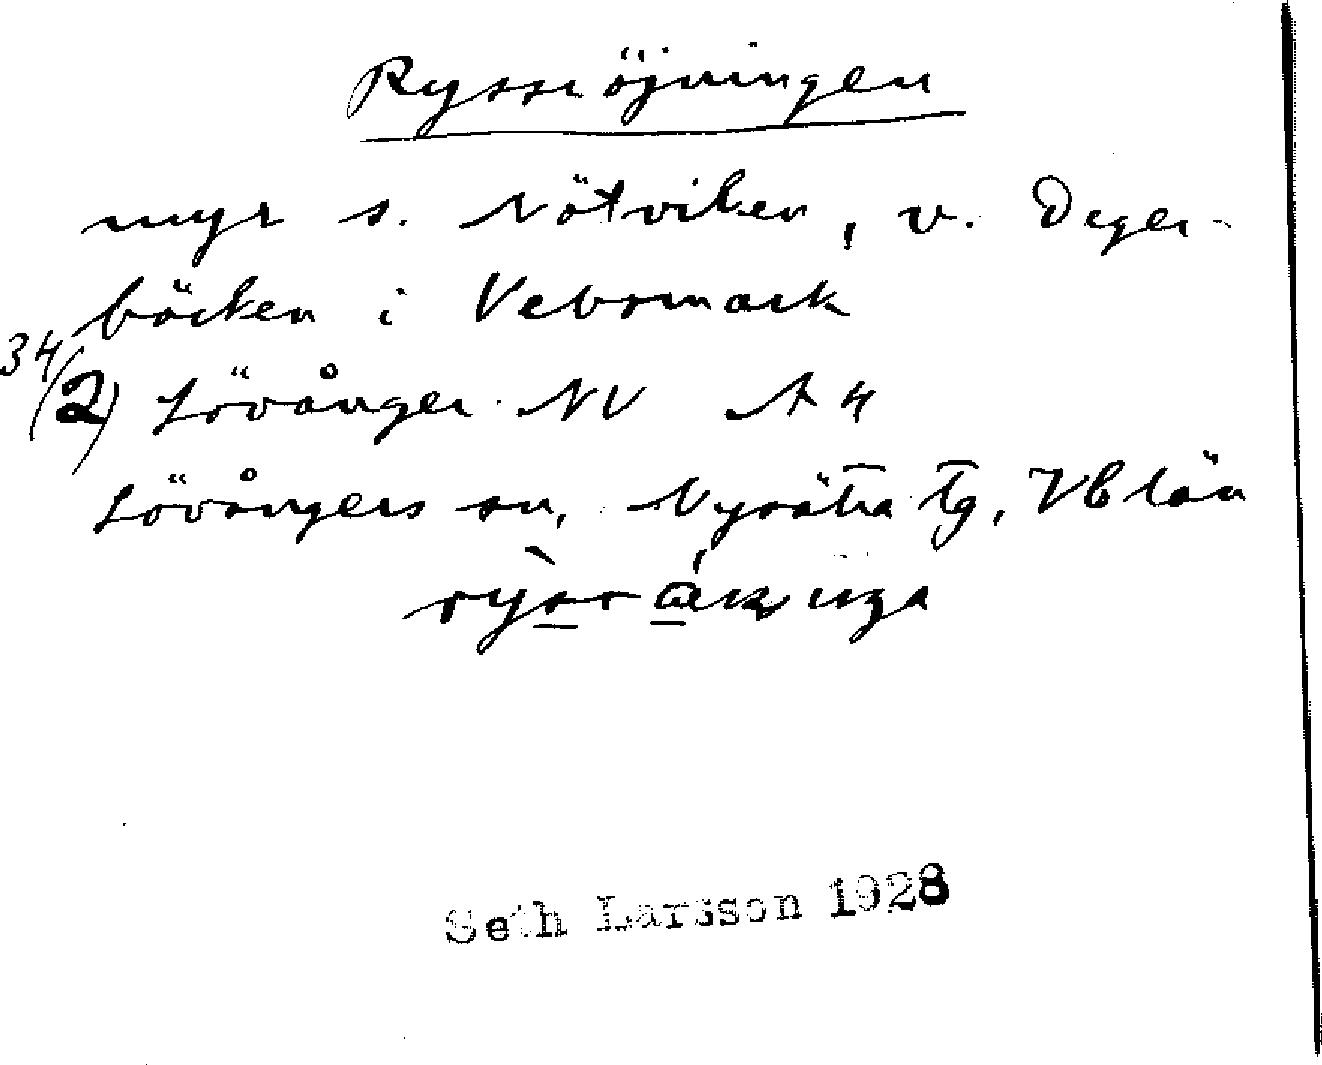 Ryssröjningen
myr s. Nötviken, v. Deger-
bäcken i Vebomark
34
(2) Lövånger NV A 4
Lövångers sn, Nysätra tg, Vb län
Seth Larsson 1928